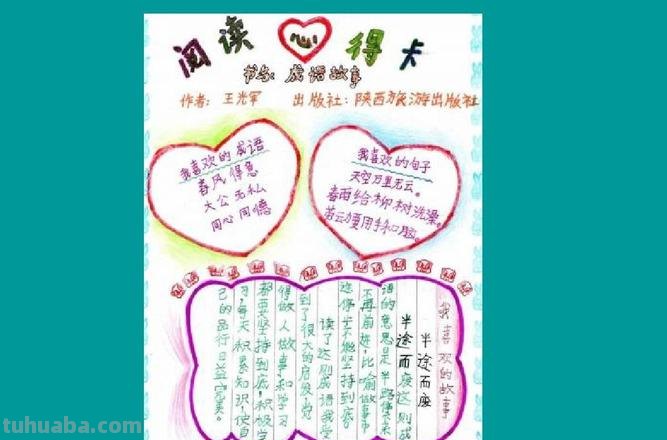 阅读心得卡
书名:成语故事
作者:王光军 出版社:陕西旅游出版社
我喜欢的成语
春风得意
大公无私
同心同德
我喜欢的句子
天空万里无云。
春雨给柳树洗澡。
劳动要用手和脑。
我喜欢的故事
半途而废
半途而废这则成
语的意思是半路停下来
不再前进,比喻做事中
途停止不能坚持到底
读了这则成语我受
到了很大的启发,
得做人做事和学习
都要坚持到底,积极学
习,每天积累知识,使自
己的品行日益完美。
tuhuaba.com